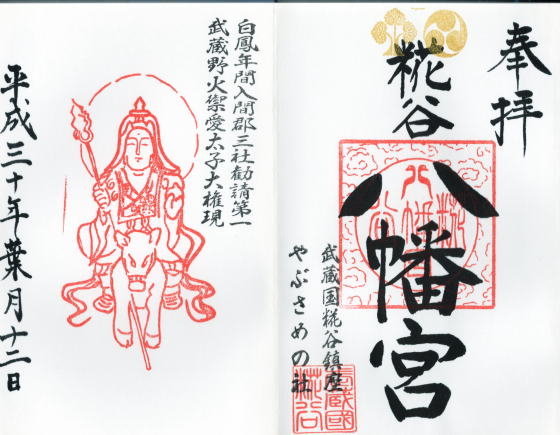 奉拝
糀谷
八幡宮
武蔵国糀谷鎮座
やぶさめの社
白鳳年間入間郡三社勧請第一
武蔵野火禦愛太子大権現
平成三十年葉月十二日